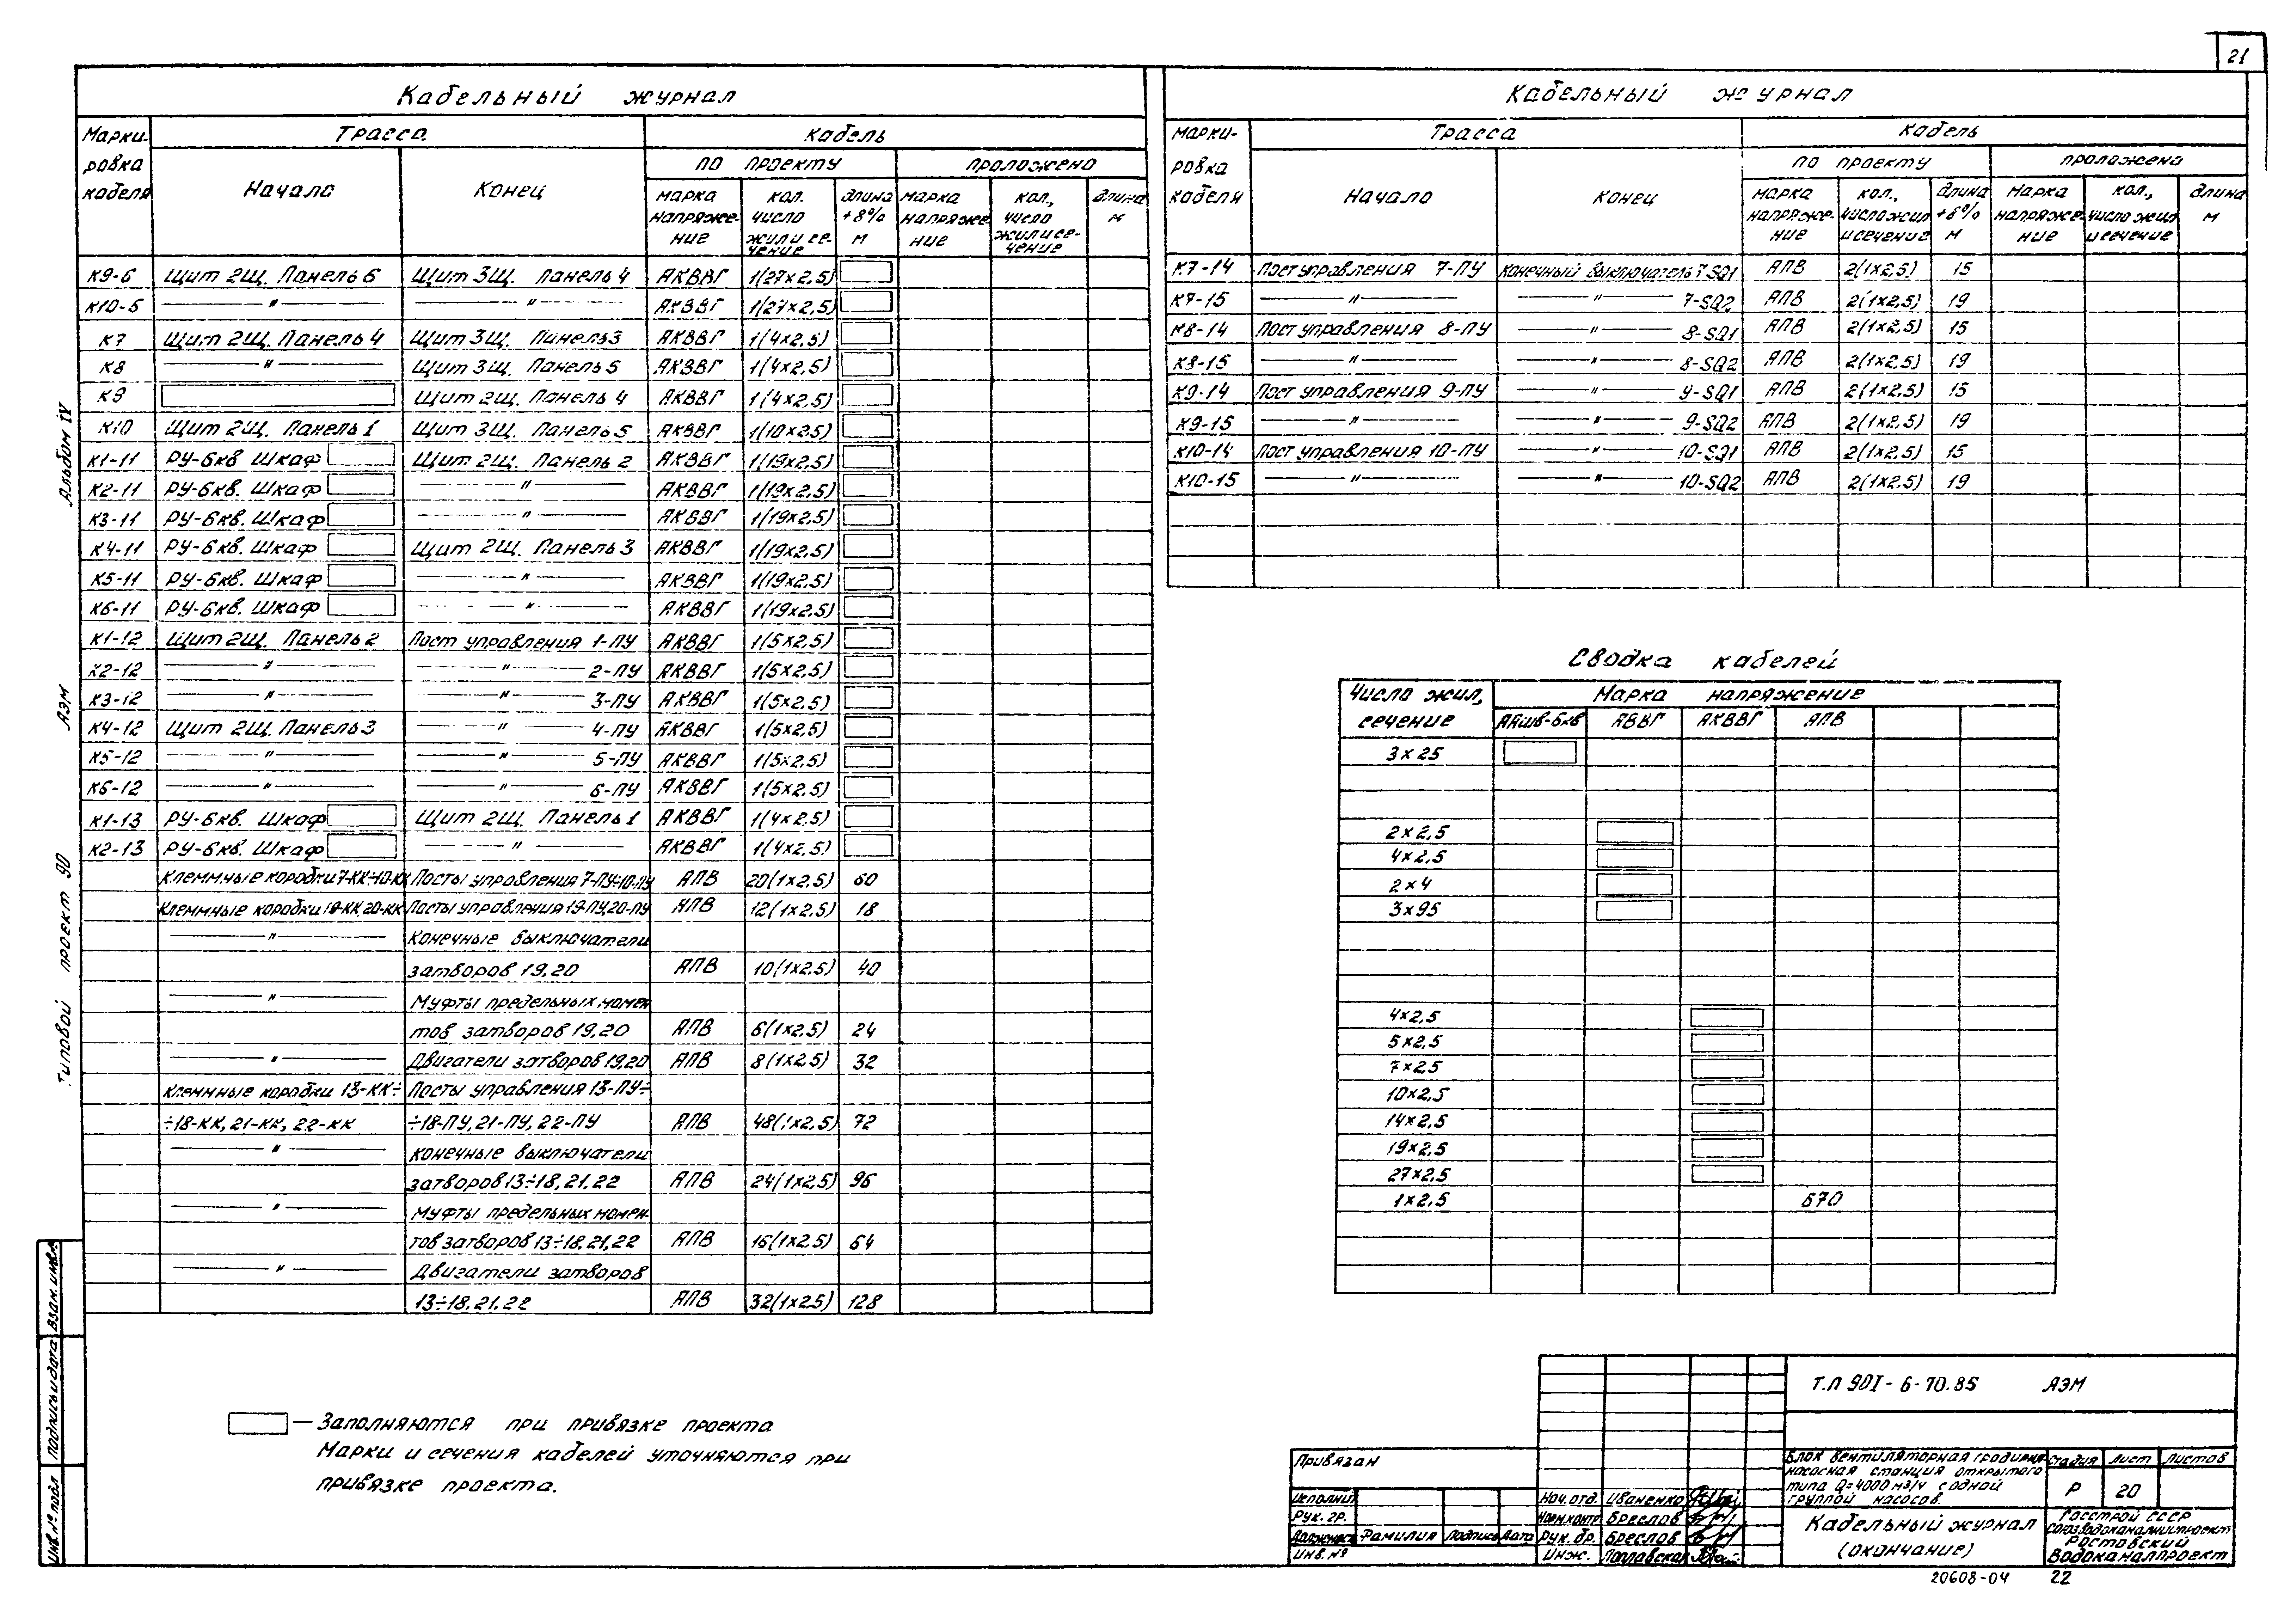 21
Кабельный журнал
Маркировка кабеля | Трасса | Кабель
по проекту | проложено
Начало | Конец | марка напряжение | кол. число жил и сечение | длина +8% м | марка напряжение | кол., число жил и сечение | длина м
К9-6 Щит 2Щ. Панель 6 Щит 3Щ. Панель 4 АКВВГ 1(27×2,5)
К10-6 —"— —"— АКВВГ 1(27×2,5)
К7 Щит 2Щ. Панель 4 Щит 3Щ. Панель 3 АКВВГ 1(4×2,5)
К8 —"— Щит 3Щ. Панель 5 АКВВГ 1(4×2,5)
К9 Щит 2Щ. Панель 4 АКВВГ 1(4×2,5)
К10 Щит 2Щ. Панель 1 Щит 3Щ. Панель 5 АКВВГ 1(10×2,5)
К1-11 РУ-6кв Шкаф Щит 2Щ. Панель 2 АКВВГ 1(19×2,5)
К2-11 РУ-6кв. Шкаф —"— АКВВГ 1(19×2,5)
К3-11 РУ-6кв. Шкаф —"— АКВВГ 1(19×2,5)
К4-11 РУ-6кв. Шкаф Щит 2Щ. Панель 3 АКВВГ 1(19×2,5)
К5-11 РУ-6кв. Шкаф —"— АКВВГ 1(19×2,5)
К6-11 РУ-6кв. Шкаф —"— АКВВГ 1(19×2,5)
К1-12 Щит 2Щ. Панель 2 Пост управления 1-ПУ АКВВГ 1(5×2,5)
К2-12 —"— —"— 2-ПУ АКВВГ 1(5×2,5)
К3-12 —"— —"— 3-ПУ АКВВГ 1(5×2,5)
К4-12 Щит 2Щ. Панель 3 —"— 4-ПУ АКВВГ 1(5×2,5)
К5-12 —"— —"— 5-ПУ АКВВГ 1(5×2,5)
К6-12 —"— —"— 6-ПУ АКВВГ 1(5×2,5)
К1-13 РУ-6кв. Шкаф Щит 2Щ. Панель 1 АКВВГ 1(4×2,5)
К2-13 РУ-6кв. Шкаф —"— АКВВГ 1(4×2,5)
Клеммные коробки 7-КК÷10-КК Посты управления 7-ПУ÷10-ПУ АПВ 20(1×2,5) 60
Клеммные коробки 19-КК, 20-КК Посты управления 19-ПУ, 20-ПУ АПВ 12(1×2,5) 18
—"— Конечные выключатели
затворов 19,20 АПВ 10(1×2,5) 40
—"— Муфты предельных момен
тов затворов 19,20 АПВ 6(1×2,5) 24
—"— Двигатели затворов 19,20 АПВ 8(1×2,5) 32
Клеммные коробки 13-КК÷ Посты управления 13-ПУ÷
÷18-КК, 21-КК, 22-КК ÷18-ПУ, 21-ПУ, 22-ПУ АПВ 48(1×2,5) 72
—"— конечные выключатели
затворов 13÷18, 21, 22 АПВ 24(1×2,5) 96
—"— Муфты предельных момен-
тов затворов 13÷18, 21, 22 АПВ 16(1×2,5) 64
—"— Двигатели затворов
13÷18, 21, 22 АПВ 32(1×2,5) 128
— Заполняются при привязке проекта
Марки и сечения кабелей уточняются при
привязке проекта.
Кабельный журнал
Маркировка кабеля | Трасса | Кабель
по проекту | проложено
Начало | Конец | марка напряжение | кол., число жил и сечение | длина +8% м | марка напряжение | кол., число жил и сечение | длина м
К7-14 Пост управления 7-ПУ Конечный выключатель 7-SQ1 АПВ 2(1×2,5) 15
К7-15 —"— —"— 7-SQ2 АПВ 2(1×2,5) 19
К8-14 Пост управления 8-ПУ —"— 8-SQ1 АПВ 2(1×2,5) 15
К8-15 —"— —"— 8-SQ2 АПВ 2(1×2,5) 19
К9-14 Пост управления 9-ПУ —"— 9-SQ1 АПВ 2(1×2,5) 15
К9-15 —"— —"— 9-SQ2 АПВ 2(1×2,5) 19
К10-14 Пост управления 10-ПУ —"— 10-SQ1 АПВ 2(1×2,5) 15
К10-15 —"— —"— 10-SQ2 АПВ 2(1×2,5) 19
Сводка кабелей
Число жил, сечение | Марка напряжение
ААшв-6кв АВВГ АКВВГ АПВ
3×25
2×2,5
4×2,5
2×4
3×95
4×2,5
5×2,5
7×2,5
10×2,5
14×2,5
19×2,5
27×2,5
1×2,5 670
Типовой проект 90 АЭМ Альбом IV
Инв.№ подл Подпись и дата Взам. инв.№
Т.П 901-6-70.85 АЭМ
Блок вентиляторная градирня-
насосная станция открытого
типа Q=4000 м³/ч с одной
группой насосов.
Стадия Лист Листов
Р 20
Кабельный журнал
(окончание)
Госстрой СССР
Союзводоканалниипроект
Ростовский
Водоканалпроект
Привязан
Исполнит.
Рук. гр.
Должность Фамилия Подпись Дата
Инв. №
Нач. отд. Иваненко
Норм.контр. Бреслов
Рук. бр. Бреслов
Инж.
20608-04 22